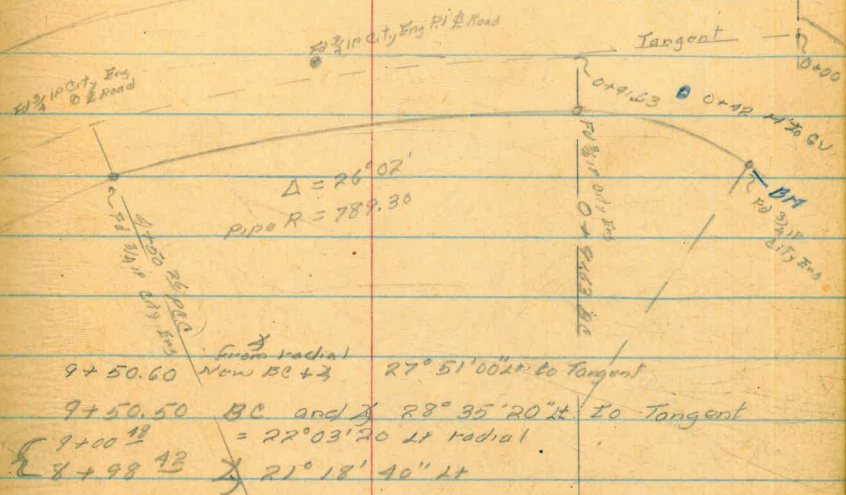 Fd ¾ IP City Eng P.I. ₵ Road
Tangent
0+00
Fd ¾ IP City Eng
₵ Road
0+91.63
0+42 M to GV
BM
Fd 3/4 IP
City Eng
Δ = 26°02'
pipe R = 789.30
4+50.26 PCC
Fd 3/4 IP City Eng
Fd ¾ IP City Eng
0+91.63 BC
From radial
9+50.60 New BC + ∡ 27°51'00" Lt to Tangent
9+50.50 BC and ∡ 28°35'20" Lt to Tangent
9+00 = 22°03'20 Lt radial
8+98 42 ∡ 21°18'40" Lt